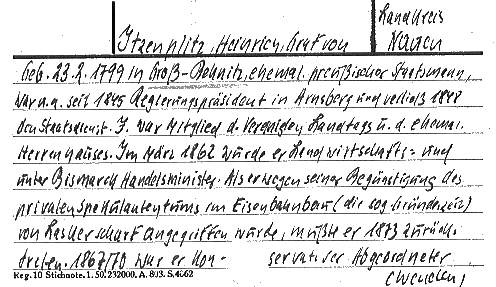 Itzenplitz, Heinrich, Graf von
Landkreis
Nauen
Geb. 23.2.1799 in Groß-Behnitz, ehemal. preußischer Staatsmann,
war u.a. seit 1845 Regierungspräsident in Arnsberg und verließ 1848
den Staatsdienst. I. war Mitglied d. Vereinigten Landtags u. d. ehemal.
Herrenhauses. Im März 1862 wurde er Landwirtschafts- und
unter Bismarck Handelsminister. Als er wegen seiner Begünstigung des
privaten Spekulantentums im Eisenbahnbau (die sog. Gründerzeit)
von Lasker scharf angegriffen wurde, mußte er 1873 zurück-
treten. 1867/70 war er kon- servativer Abgeordneter
Reg. 10 Stichnote. 1. 50. 232000. A. 803. S. 4662
(wenden)